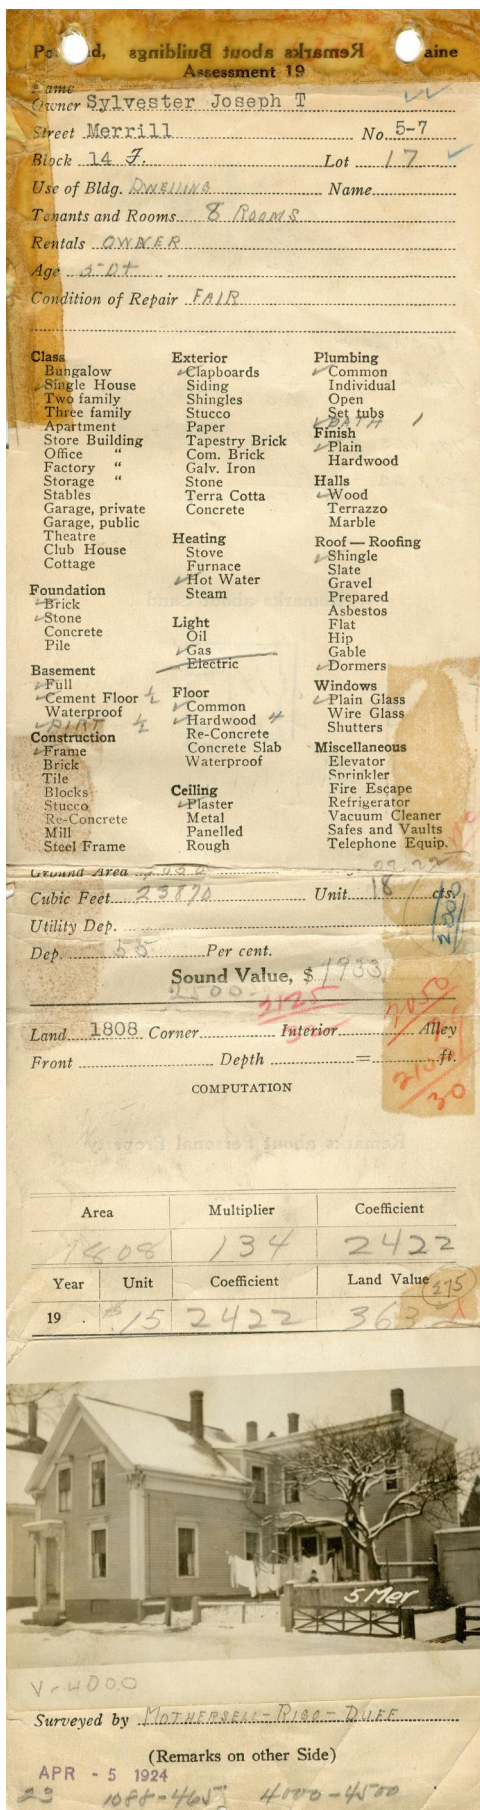 Remarks about Buildings
Po nd, aine
Assessment 19
Name
Owner Sylvester Joseph T
Street Merrill No 5-7
Block 14 F. Lot 17
Use of Bldg. DWELLING Name
Tenants and Rooms 8 ROOMS
Rentals OWNER
Age 50+
Condition of Repair FAIR
Class
Bungalow
Single House
Two family
Three family
Apartment
Store Building
Office "
Factory "
Storage "
Stables
Garage, private
Garage, public
Theatre
Club House
Cottage
Foundation
Brick
Stone
Concrete
Pile
Basement
Full
Cement Floor ½
Waterproof
DIRT ½
Construction
Frame
Brick
Tile
Blocks
Stucco
Re-Concrete
Mill
Steel Frame
Exterior
Clapboards
Siding
Shingles
Stucco
Paper
Tapestry Brick
Com. Brick
Galv. Iron
Stone
Terra Cotta
Concrete
Heating
Stove
Furnace
Hot Water
Steam
Light
Oil
Gas
Electric
Floor
Common
Hardwood 4
Re-Concrete
Concrete Slab
Waterproof
Ceiling
Plaster
Metal
Panelled
Rough
Plumbing
Common
Individual
Open
Set tubs
BATH 1
Finish
Plain
Hardwood
Halls
Wood
Terrazzo
Marble
Roof — Roofing
Shingle
Slate
Gravel
Prepared
Asbestos
Flat
Hip
Gable
Dormers
Windows
Plain Glass
Wire Glass
Shutters
Miscellaneous
Elevator
Sprinkler
Fire Escape
Refrigerator
Vacuum Cleaner
Safes and Vaults
Telephone Equip.
Ground Area
Cubic Feet 23870 Unit 18 cts.
Utility Dep.
Dep. 55 Per cent.
Sound Value, $ 1933
2500
3125
Land 1808 Corner Interior Alley
Front Depth = ft.
2100
30
COMPUTATION
Remarks about Personal Property
Area Multiplier Coefficient
1808 134 2422
Year Unit Coefficient Land Value 375
19 . .15 2422 363
5 Mer
V-4000
Surveyed by MOTHERSELL-RIGO-DUFF
(Remarks on other Side)
APR - 5 1924
23 1088-465 4000-4500